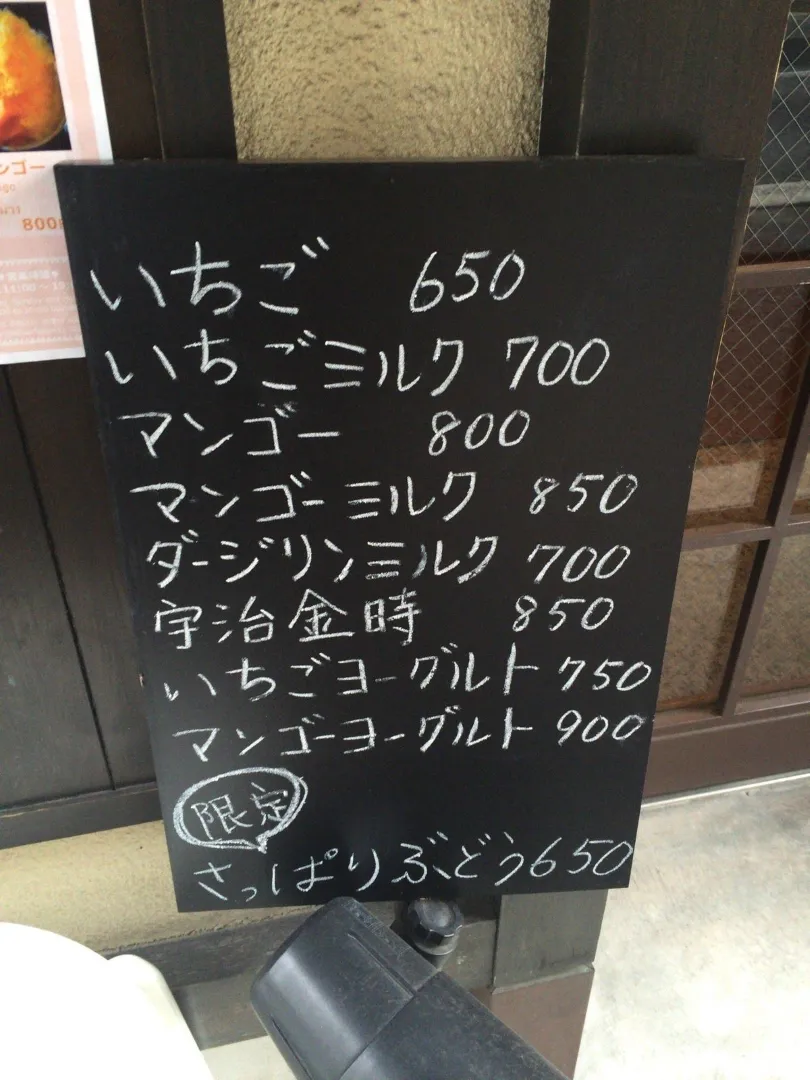 ンゴー
800
いちご 650
いちごミルク 700
マンゴー 800
マンゴーミルク 850
ダージリンミルク 700
宇治金時 850
いちごヨーグルト 750
マンゴーヨーグルト 900
限定
さっぱりぶどう650